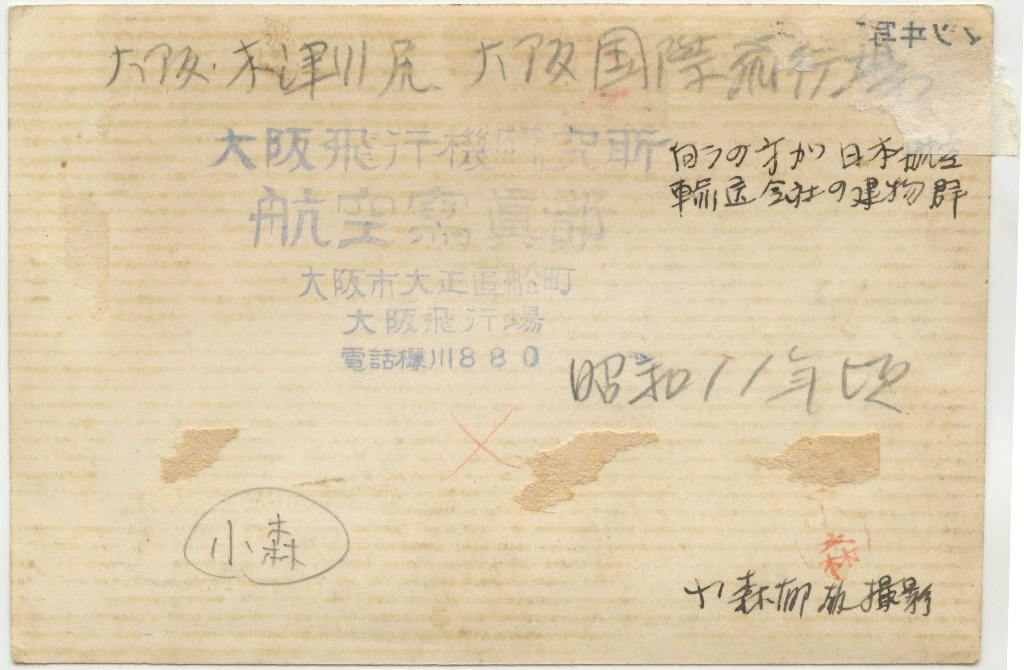 大阪・木津川尻 大阪国際飛行場
大阪飛行機研究所
航空寫真部
大阪市大正區船町
大阪飛行場
電話櫻川880
向うの方が日本航空
輸送会社の建物群
昭和11年頃
小森
小森
小森郁雄撮影